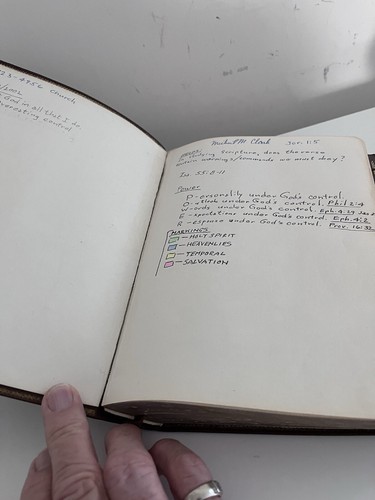 23-4456 Church
God in all that I do.
control
Michael M. Clark Jer. 1:5
studying Scripture, does the verse
contain warnings/commands we must obey?
Isa. 55:8-11
Power
P-ersonality under God's control.
O-utlook under God's control. Phil. 2:4
W-ords under God's control. Eph. 4:29
E-xpectations under God's control. Eph. 4:2
R-esponse under God's control. Prov. 16:32
MARKINGS
- HOLY SPIRIT
- HEAVENLIES
- TEMPORAL
- SALVATION